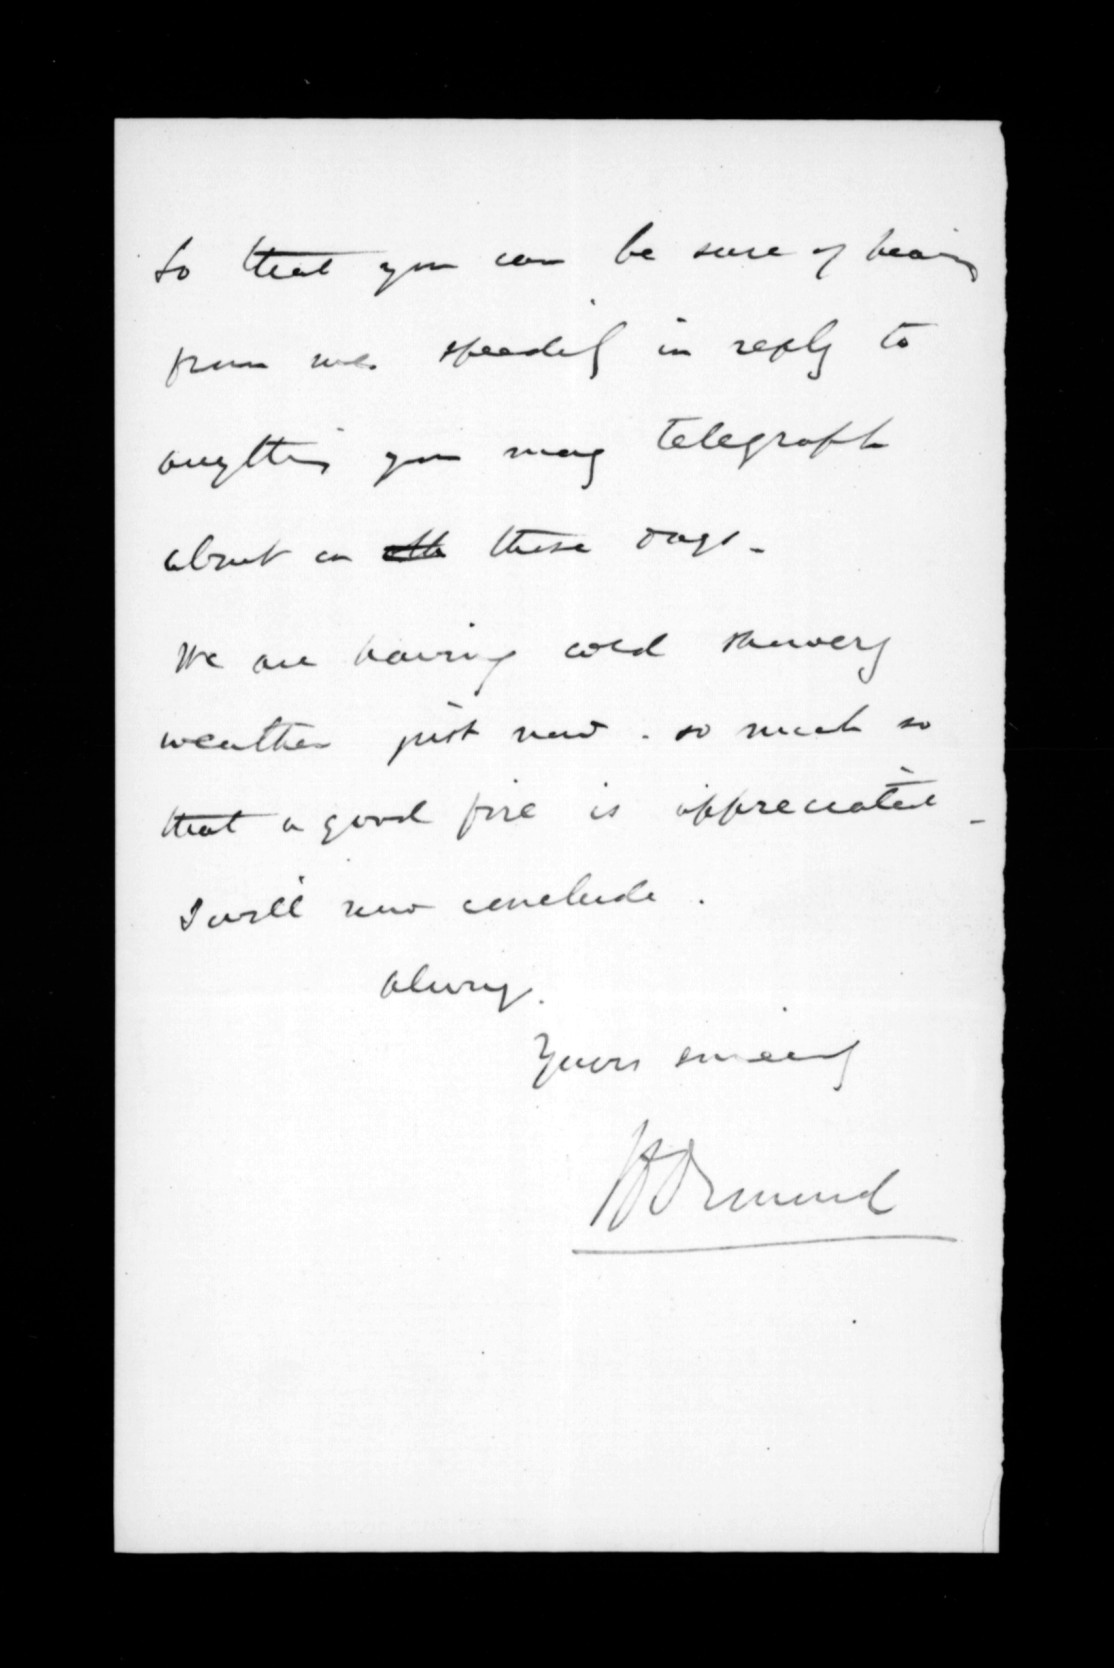 So that you can be sure of hearing
from me speedily in reply to
anything you may telegraph
about on these days -
We are having cold showery
weather just now . so much so
that a good fire is appreciated -
I will now conclude .
Always.
Yours sincerely
Ormond